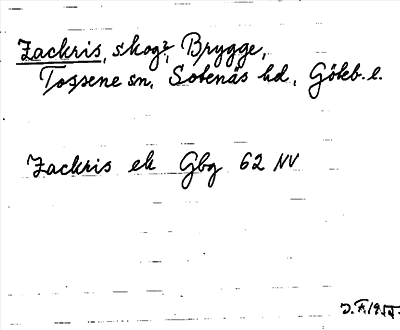 Zackris, skog?, Brygge,
Tossene sn, Sotenäs hd, Göteb. l.
Zackris ek Gbg 62 NV